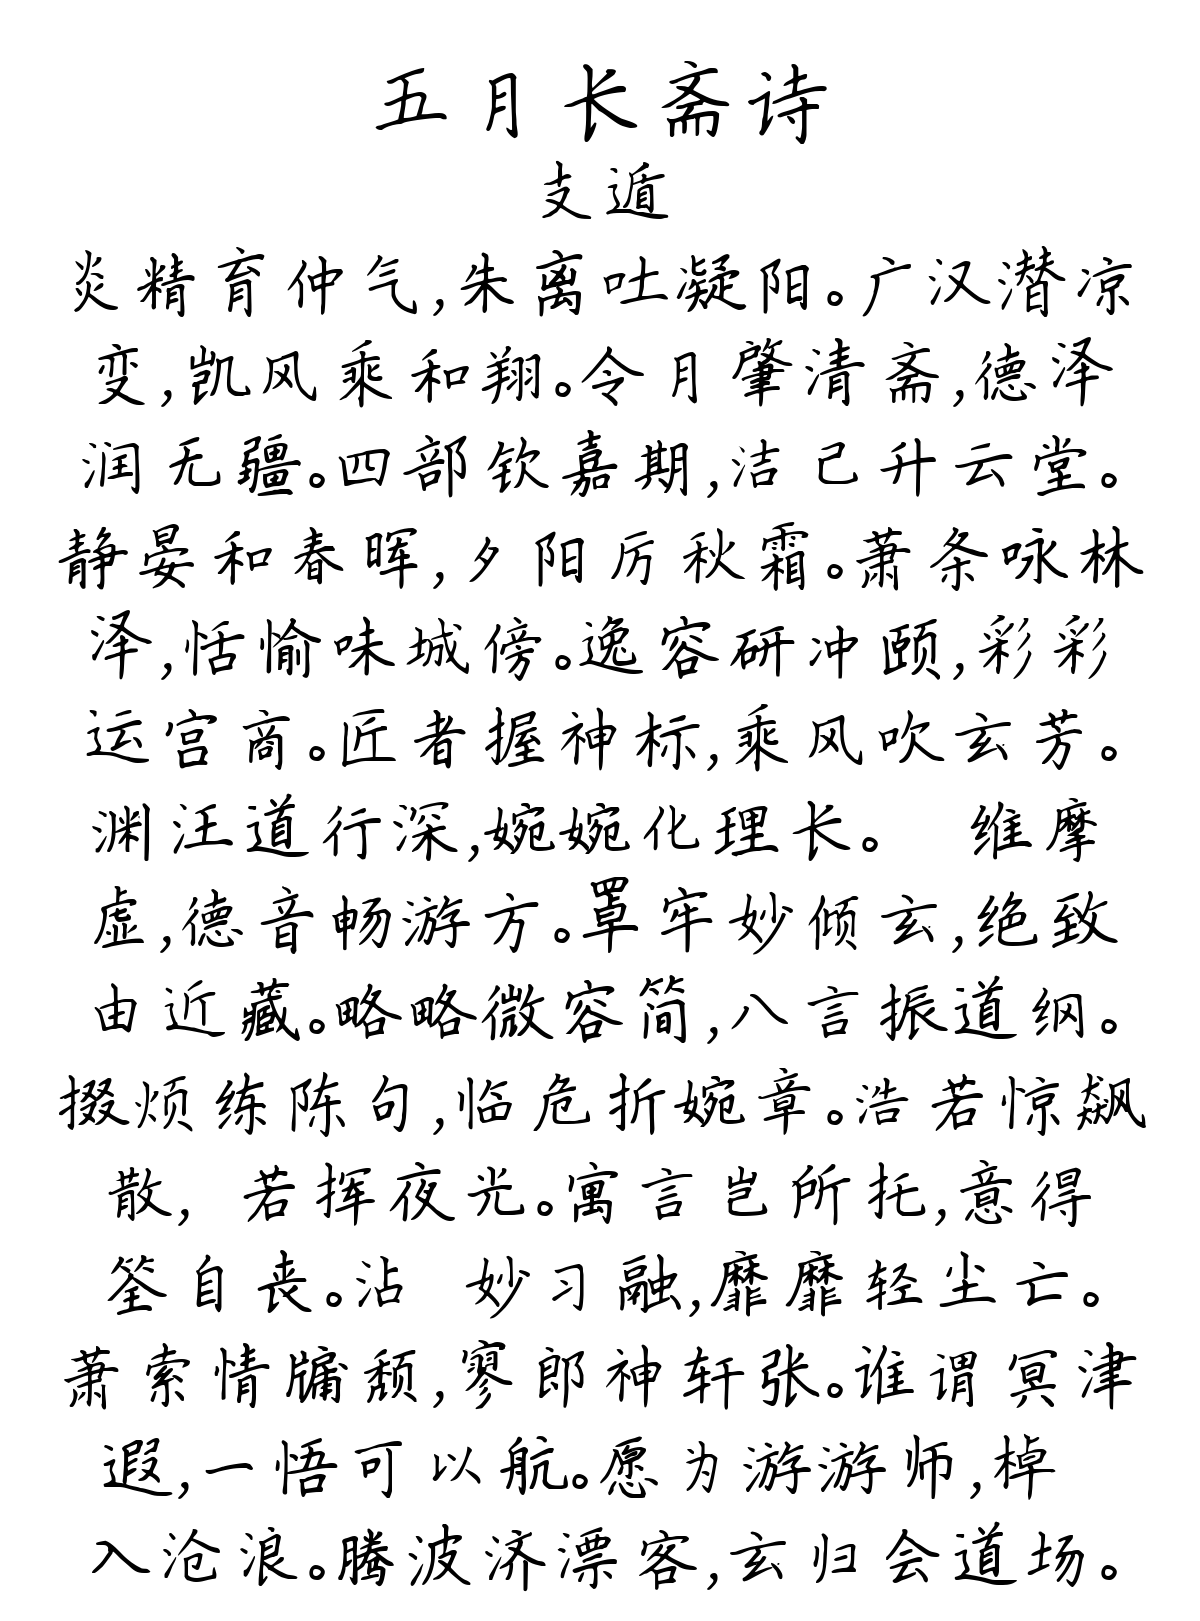 五月长斋诗
支遁
炎精育仲气,朱离吐凝阳。广汉潜凉
变,凯风乘和翔。令月肇清斋,德泽
润无疆。四部钦嘉期,洁己升云堂。
静晏和春晖,夕阳厉秋霜。萧条咏林
泽,恬愉味城傍。逸容研冲颐,彩彩
运宫商。匠者握神标,乘风吹玄芳。
渊汪道行深,婉婉化理长。 维摩
虚,德音畅游方。罩牢妙倾玄,绝致
由近藏。略略微容简,八言振道纲。
掇烦练陈句,临危折婉章。浩若惊飙
散, 若挥夜光。寓言岂所托,意得
筌自丧。沾 妙习融,靡靡轻尘亡。
萧索情牖颓,寥郎神轩张。谁谓冥津
遐,一悟可以航。愿为游游师,棹
入沧浪。腾波济漂客,玄归会道场。